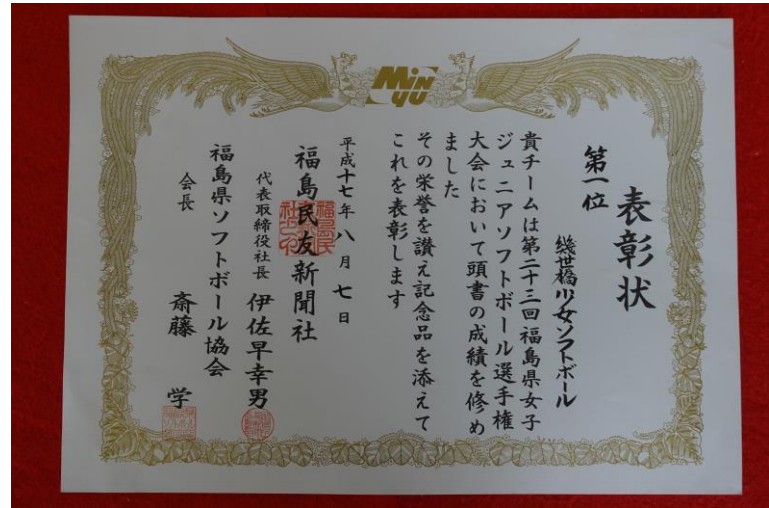 MiN
YU
表彰状
第一位
幾世橋少女ソフトボール
貴チームは第二十三回福島県女子
ジュニアソフトボール選手権
大会において頭書の成績を修め
ました
その栄誉を讃え記念品を添えて
これを表彰します
平成十七年八月七日
福島民友新聞社
代表取締役社長 伊佐早幸男
福島県ソフトボール協会
会長 斎藤 学